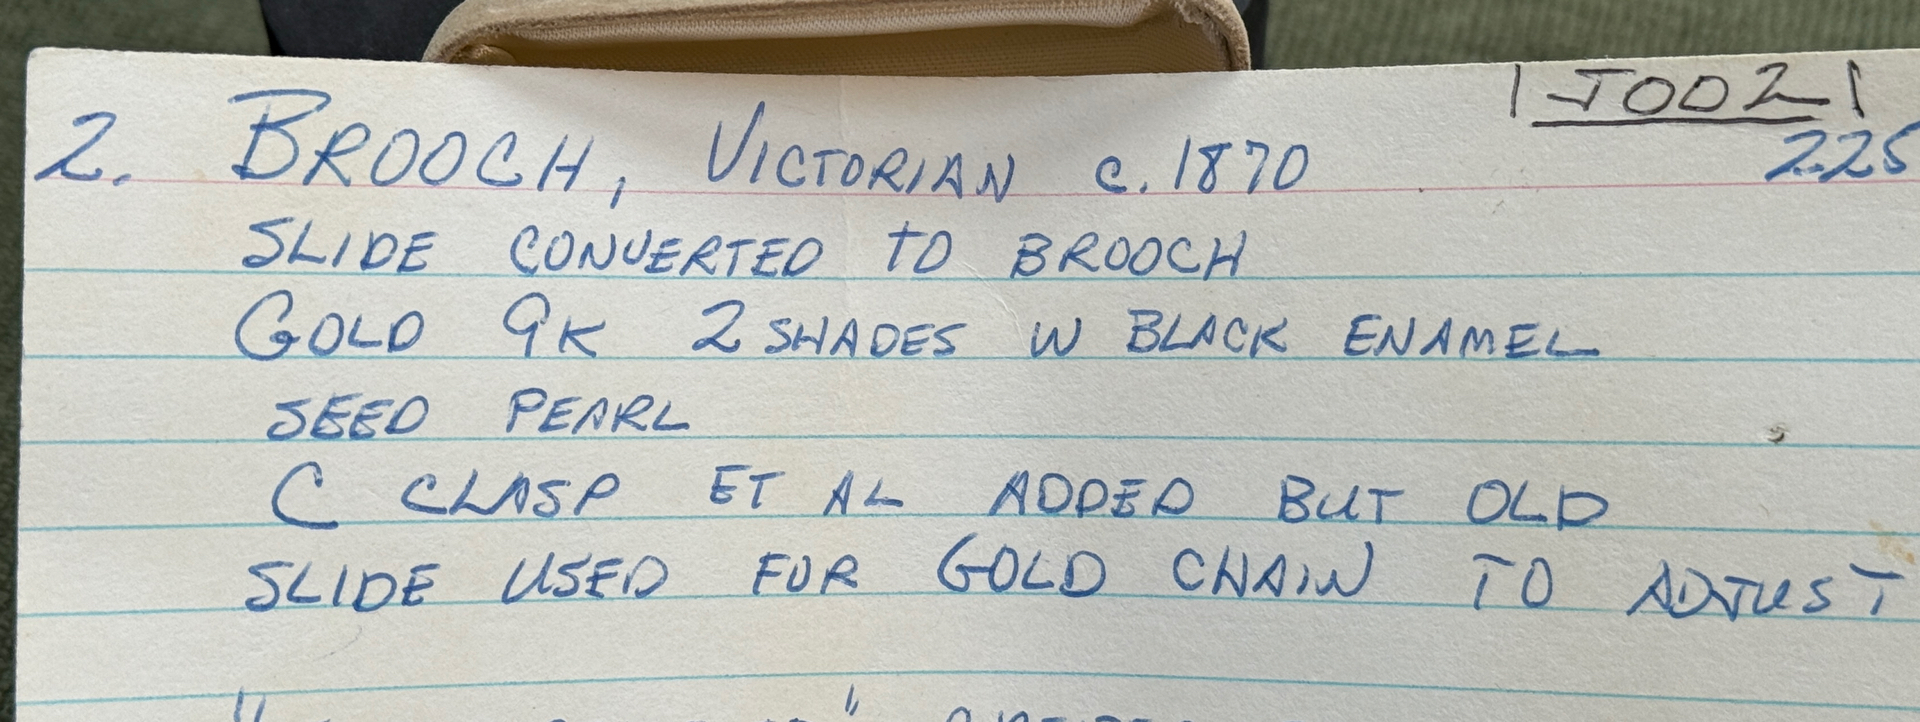 |J002|
2. BROOCH, VICTORIAN c. 1870 225
SLIDE CONVERTED TO BROOCH
GOLD 9K 2 SHADES W BLACK ENAMEL
SEED PEARL
C CLASP ET AL ADDED BUT OLD
SLIDE USED FOR GOLD CHAIN TO ADJUST